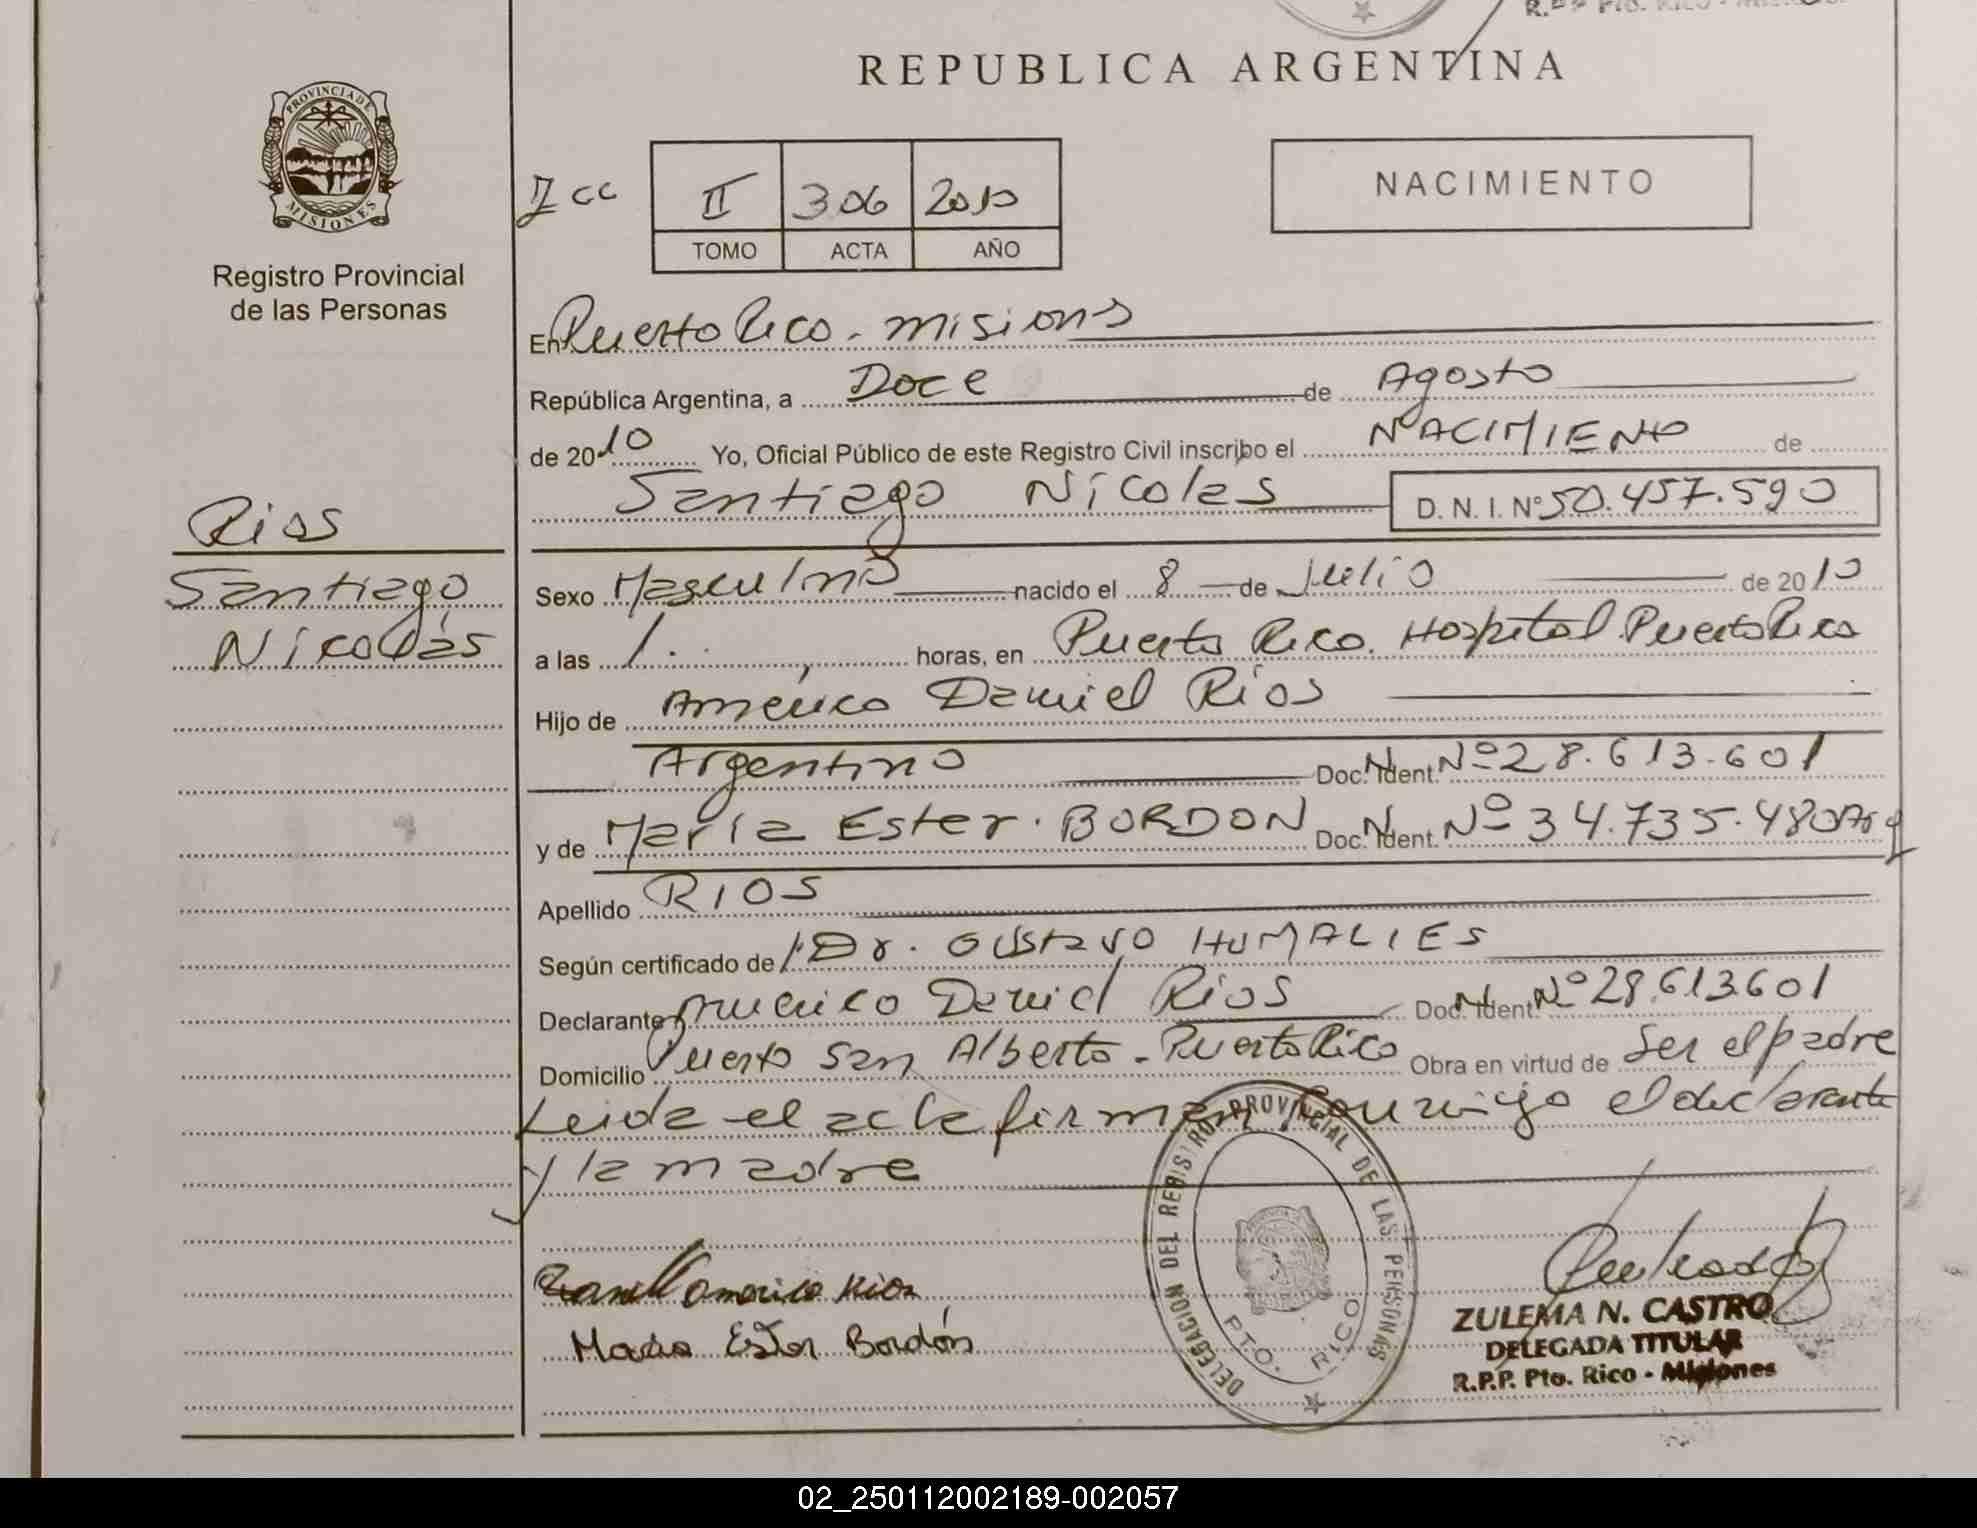 REPUBLICA ARGENTINA
PROVINCIA DE
MISIONES
Registro Provincial
de las Personas
II 306 2010
TOMO ACTA AÑO
NACIMIENTO
En Puerto Rico - Misiones
República Argentina, a Doce de Agosto
de 2010 Yo, Oficial Público de este Registro Civil inscribo el NACIMIENTO de
Santiago Nicolas D. N. I. Nº 50.457.590
Rios
Santiago
Nicolás
Sexo Masculino nacido el 8 de Julio de 2010
a las 1 horas, en Puerto Rico. Hospital Puerto Rico
Hijo de Américo Daniel Ríos
Argentino Doc. N. Ident. Nº 28.613.601
y de María Ester BORDON Doc. N. Ident. Nº 34.735.480 Arg
Apellido RIOS
Según certificado de Dr. Gustavo HUMALIES
Declarante Americo Daniel Rios Doc. N. Ident. Nº 28.613.601
Domicilio Puerto San Alberto - Puerto Rico Obra en virtud de Ser el padre
Leida el acta firman conmigo el declarante
y la madre
DELEGACION DEL REGISTRO PROVINCIAL DE LAS PERSONAS
PTO. RICO
Daniel americo Rios
Maria Ester Bordón
ZULEMA N. CASTRO
DELEGADA TITULAR
R.P.P. Pto. Rico - Misiones
02_250112002189-002057